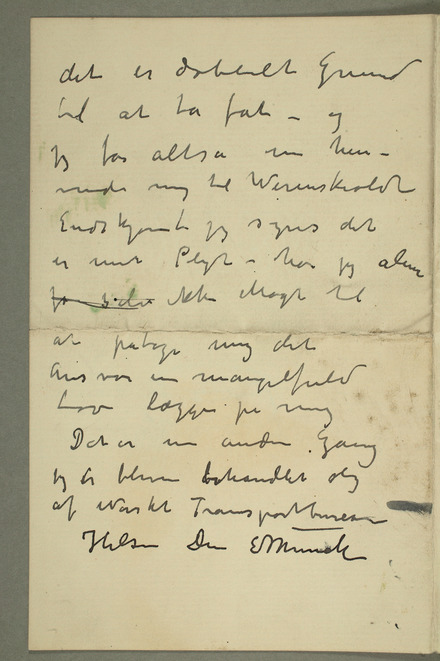 det er dobbelt Grund
til at ta fat – og
jeg får altså nu hen-
vende mig til Werenskiold
Endskjønt jeg synes det
er min Pligt – har jeg alene
ikke Magt til
at påtage mig det
Ansvar en mangelfuld
Lov lægger på mig
Det er nu anden Gang
jeg er bleven behandlet slig
af Norsk Transportbureau
Hilsen Din EMunch